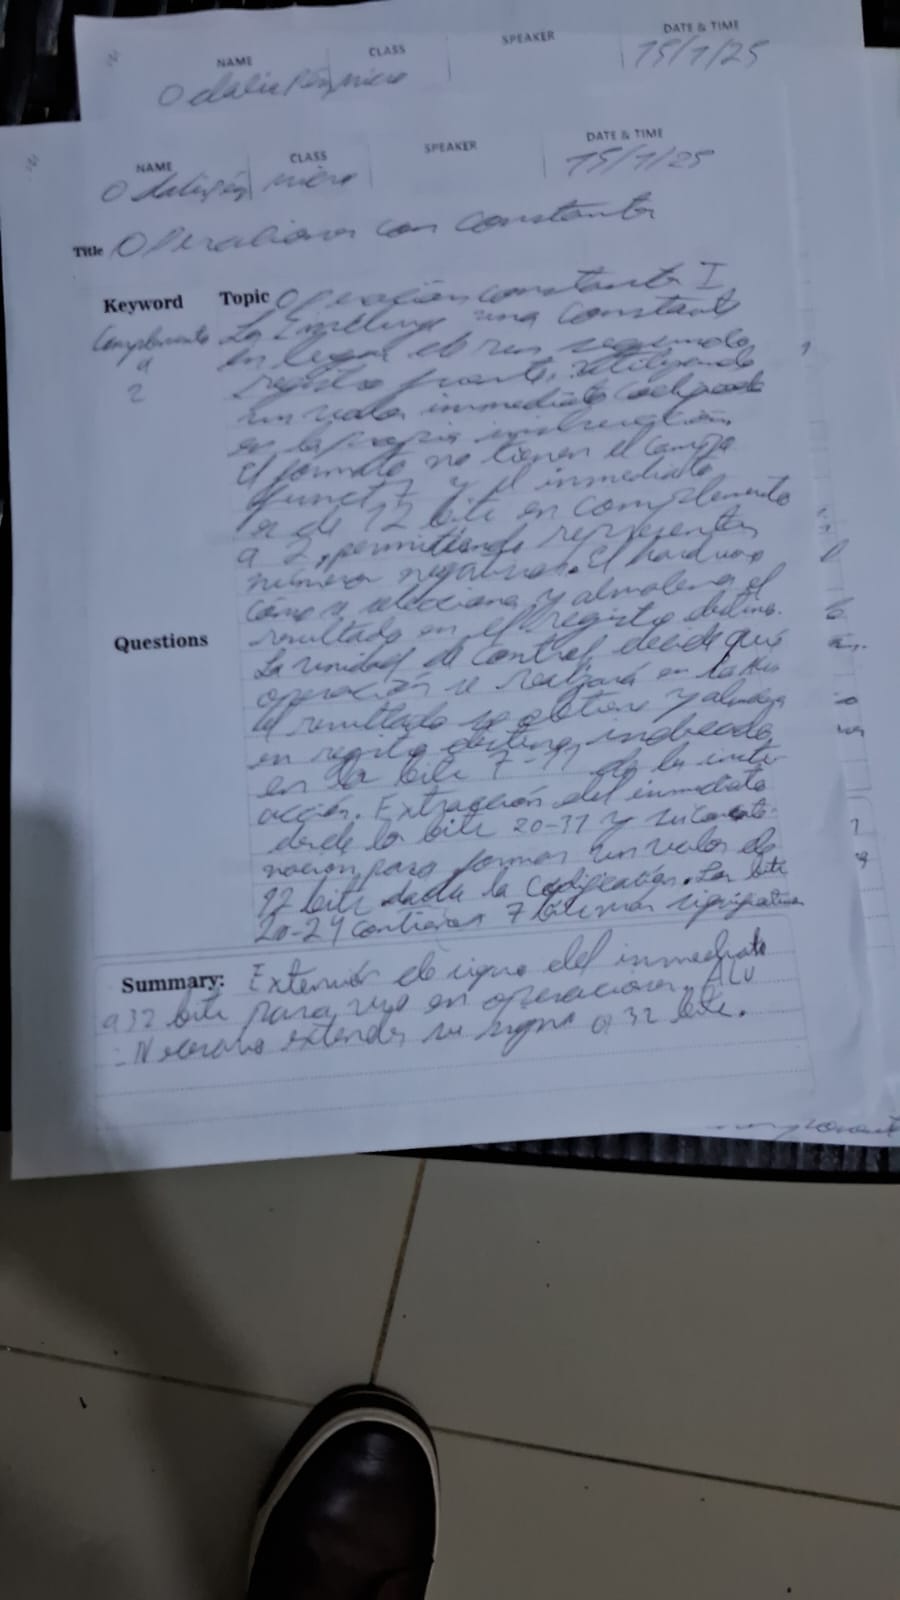 NAME CLASS SPEAKER DATE & TIME
Odalis micro 15/1/25
NAME CLASS SPEAKER DATE & TIME
Odalis micro 15/1/25
Title Operaciones con constante
Keyword Topic Operación constante I
Complemento La una constante
a en lugar de un segundo
2 registro fuente, utilizando
un valor inmediato codificado
en la propia instrucción.
El formato no tienen el campo
funct 7 y el inmediato
es de 12 bits en complemento
a 2, permitiendo representar
números negativos. El hardware
como se selecciona y almacena el
Questions resultado en el registro destino.
La unidad de control decide que
operación se realizará en la
el resultado se obtiene y almacena
en registro destino indicado
en los bits 7-11 de la instru-
acción. Extracción del inmediato
desde los bits 20-31 y su concate-
nación para formar un valor de
12 bits dada la codificación. Los bits
20-24 contienen 7 bits más significativos
Summary: Extensión de signo del inmediato
a 32 bits para uso en operaciones ALU
- Necesario extender su signo a 32 bits.